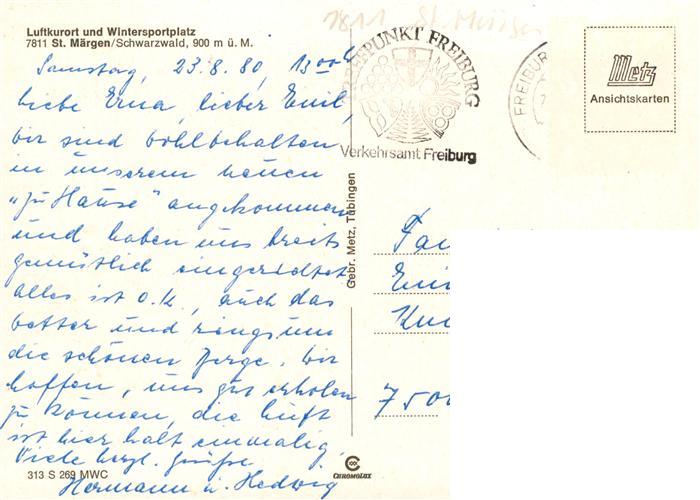 Luftkurort und Wintersportplatz
7811 St. Märgen/Schwarzwald, 900 m ü. M.
7811 St. Märgen
Samstag, 23.8.80, 13 00 h
Liebe Erna, lieber Emil,
wir sind wohlbehalten
in unserem neuen
„zu Hause" angekommen
und haben uns breits
gemütlich eingerichtet
alles ist o.k., auch das
Wetter und ringsum
die schönen Berge. Wir
hoffen, uns gut erholen
zu können, die Luft
ist hier halt einmalig.
Viele herzl. Grüße
Hermann u. Hedwig
313 S 269 MWC
CHROMOLUX
Gebr. Metz, Tübingen
TREFFPUNKT FREIBURG
Verkehrsamt Freiburg
FREIBUR
Metz
Ansichtskarten
Fa
Emi
750